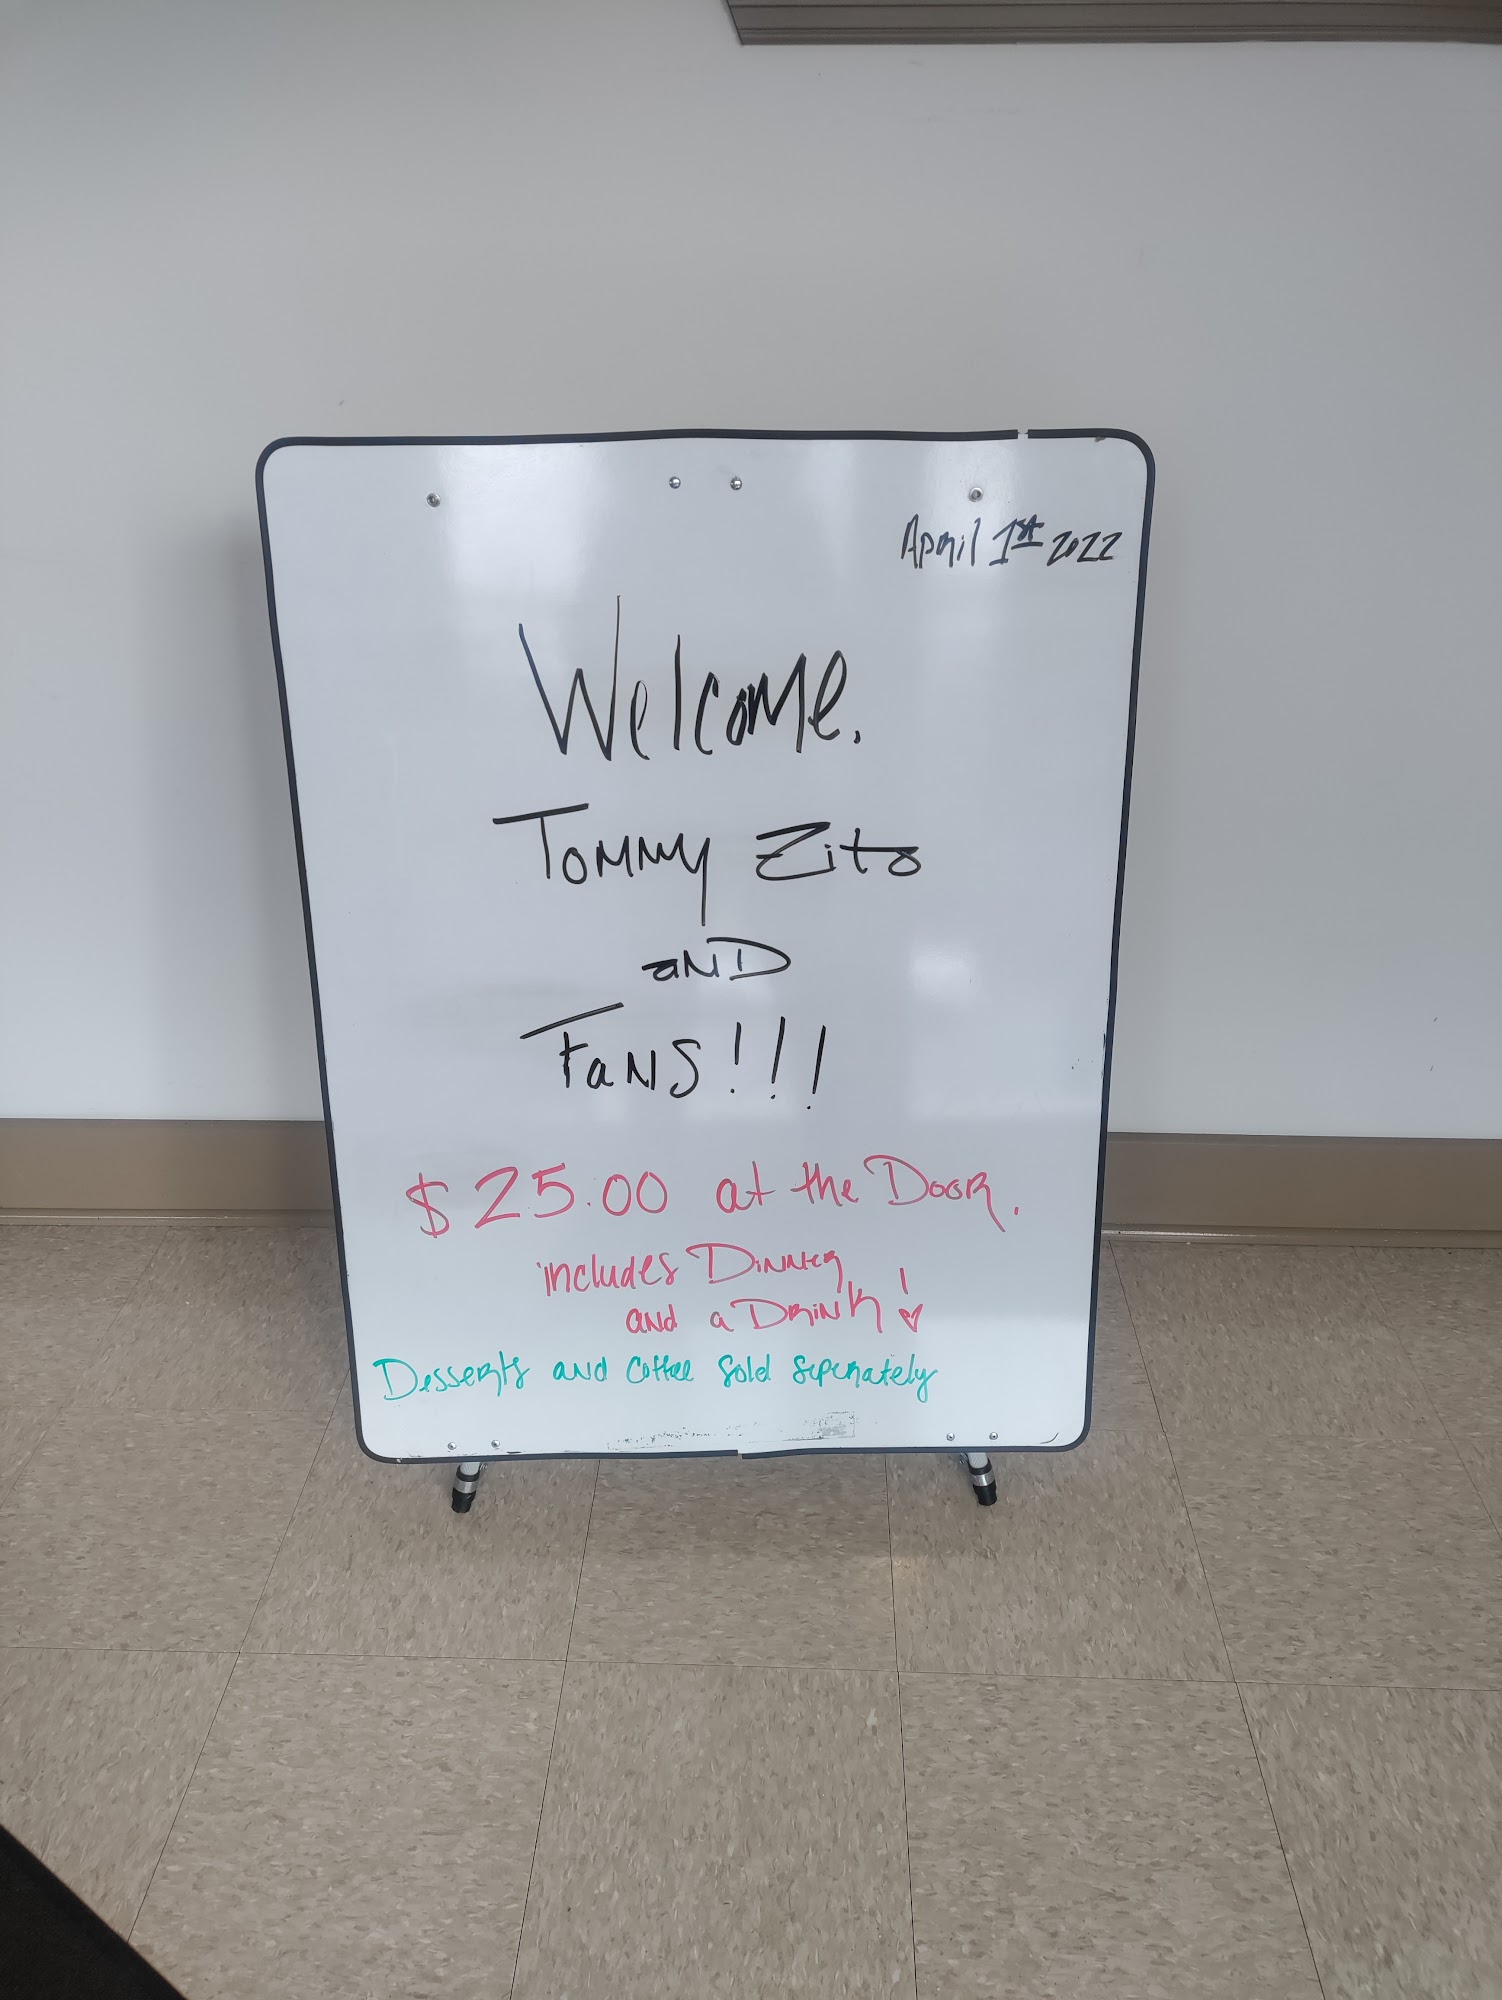 April 1st 2022
Welcome.
Tommy Zito
aND
FaNS!!!
$25.00 at the Door.
includes Dinner
and a Drink!
Desserts and Coffee Sold Seperately